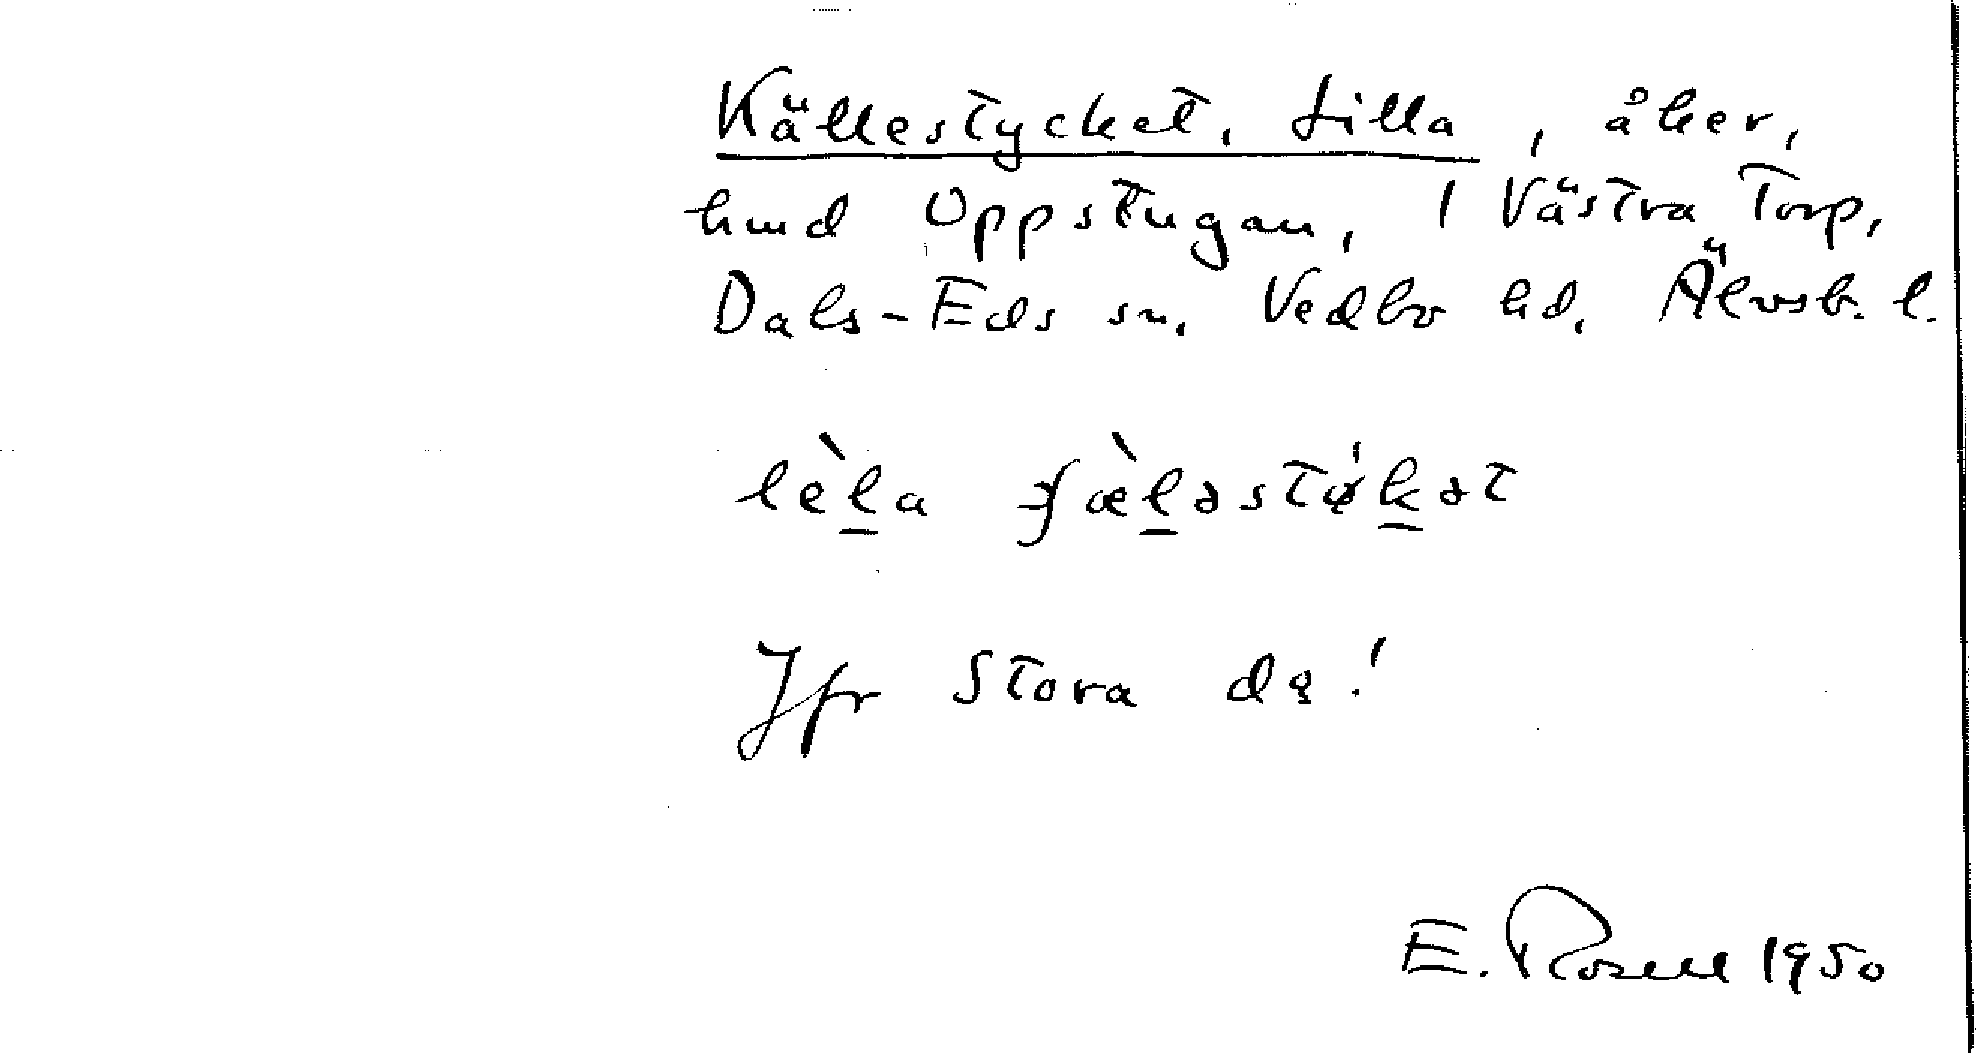 Källestycket, Lilla, åker,
hmd Uppstugan, 1 Västra Torp,
Dals-Eds sn, Vedbo hd, Älvsb. l.
lèl̠a ʃæ̀l̠əstø̀k̠ət
Jfr Stora do!
E. Rosell 1950